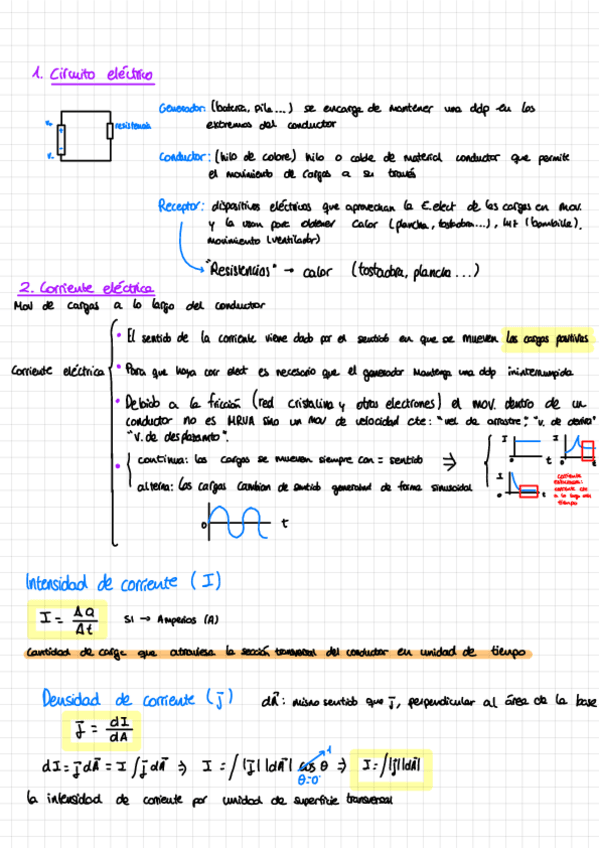 1. Circuito eléctrico
V+
V-
+
-
resistencia
Generador: (batería, pila...) se encarga de mantener una ddp en los
extremos del conductor
Conductor: (hilo de cobre) hilo o cable de material conductor que permite
el movimiento de cargas a su través
Receptor: dispositivos eléctricos que aprovechan la E.elect de las cargas en mov.
y la usan para obtener calor (plancha, tostadora...), luz (bombilla),
movimiento (ventilador)
"Resistencias" → calor (tostadora, plancha...)
2. Corriente eléctrica
Mov de cargas a lo largo del conductor
Corriente eléctrica
• El sentido de la corriente viene dado por el sentido en que se mueven las cargas positivas
• Para que haya corr elect es necesario que el generador mantenga una ddp ininterrumpida
• Debido a la fricción (red cristalina y otros electrones) el mov. dentro de un
conductor no es MRUA sino un mov de velocidad cte: "vel de arrastre", "v. de deriva"
"v. de desplazamto".
• continua: las cargas se mueven siempre con = sentido ⇒
alterna: las cargas cambian de sentido generalmd de forma sinusoidal
I
t
I
t
I
t
corriente
estacionaria:
0
t
Intensidad de corriente (I)
I = ΔQ/Δt SI → Amperios (A)
Cantidad de carga que atraviesa la sección transversal del conductor en unidad de tiempo
Densidad de corriente (j⃗) dA⃗: mismo sentido que j⃗, perpendicular al área de la base
j⃗ = dI/dA
dI = j⃗ dA⃗ = I ∫ j⃗ dA⃗ ⇒ I = ∫|j⃗| |dA⃗| cos θ ⇒ I = ∫|j⃗||dA⃗|
1
θ=0°
la intensidad de corriente por unidad de superficie transversal